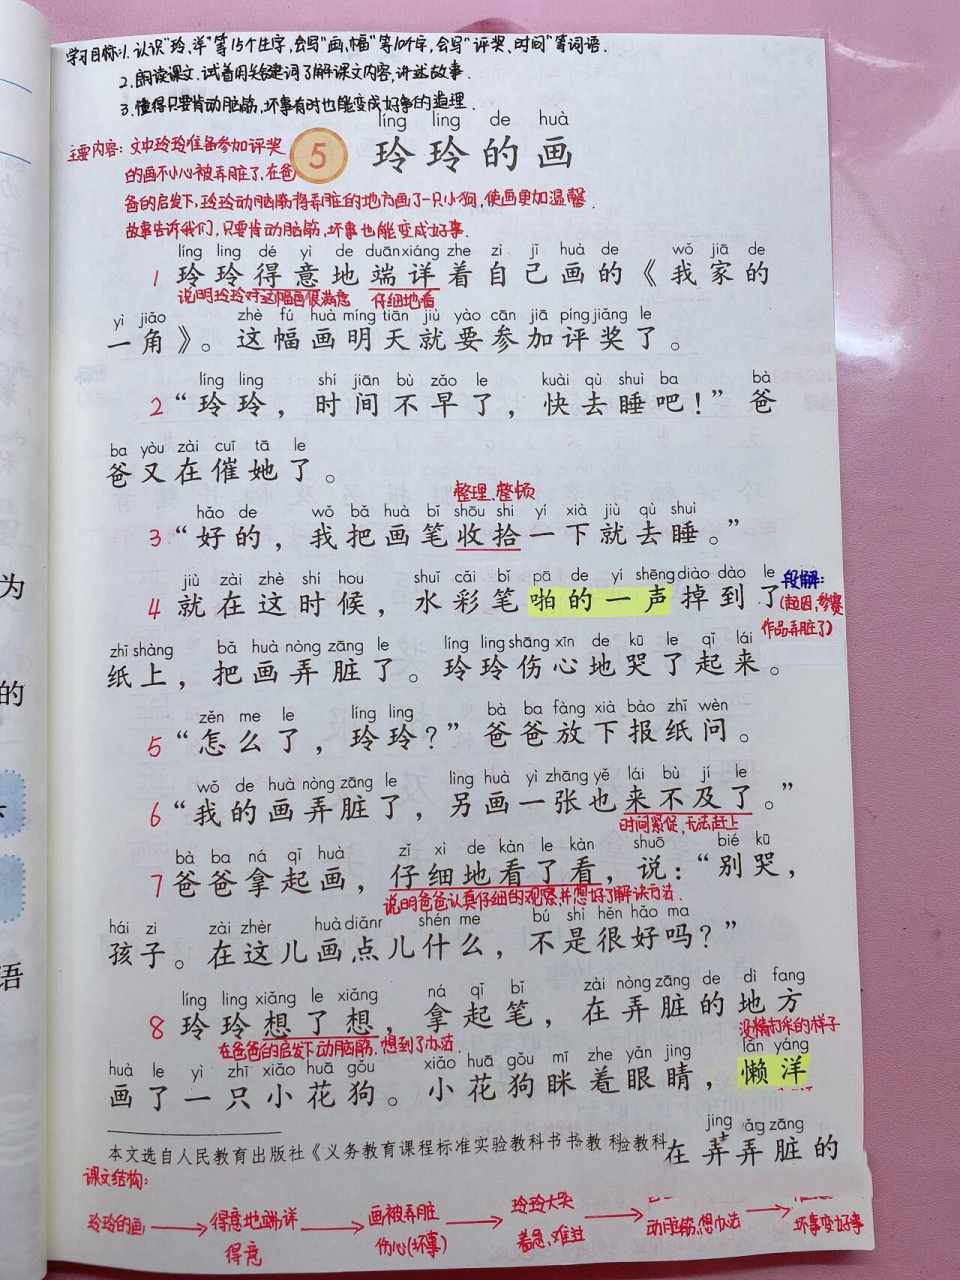 学习目标:1.认识"玲、洋"等15个生字,会写"画、幅"等10个字,会写"评奖、时间"等词语.
2.朗读课文.试着用关键词了解课文内容,讲述故事.
3.懂得只要肯动脑筋,坏事有时也能变成好事的道理.
líng ling de huà
5 玲玲的画
主要内容:文中玲玲准备参加评奖
的画不小心被弄脏了,在爸
爸的启发下,玲玲动脑筋将弄脏的地方画了一只小狗,使画更加温馨.
故事告诉我们,只要肯动脑筋,坏事也能变成好事.
líng ling dé yì de duānxiáng zhe zì jǐ huà de wǒ jiā de
1 玲玲得意地端详着自己画的《我家的
说明玲玲对这幅画很满意 仔细地看
yì jiǎo zhè fú huà míng tiān jiù yào cān jiā píng jiǎng le
一角》。这幅画明天就要参加评奖了。
líng ling shí jiān bù zǎo le kuài qù shuì ba bà
2 “玲玲,时间不早了,快去睡吧!”爸
ba yòu zài cuī tā le
爸又在催她了。
整理、整顿
hǎo de wǒ bǎ huà bǐ shōu shi yí xià jiù qù shuì
3 “好的,我把画笔收拾一下就去睡。”
jiù zài zhè shí hou shuǐ cǎi bǐ pā de yí shēng diào dào le
4 就在这时候,水彩笔啪的一声掉到了
段解:
(起因,参赛
作品弄脏了)
zhǐ shàng bǎ huà nòng zāng le líng ling shāng xīn de kū le qǐ lái
纸上,把画弄脏了。玲玲伤心地哭了起来。
zěn me le líng ling bà ba fàng xià bào zhǐ wèn
5 “怎么了,玲玲?”爸爸放下报纸问。
wǒ de huà nòng zāng le lìng huà yì zhāng yě lái bù jí le
6 “我的画弄脏了,另画一张也来不及了。”
时间紧促,无法赶上
bà ba ná qǐ huà zǐ xì de kàn le kàn shuō bié kū
7 爸爸拿起画,仔细地看了看,说:“别哭,
说明爸爸认真仔细的观察,并想好了解决方法.
hái zi zài zhèr huà diǎnr shén me bú shì hěn hǎo ma
孩子。在这儿画点儿什么,不是很好吗?”
líng ling xiǎng le xiǎng ná qǐ bǐ zài nòng zāng de dì fang
8 玲玲想了想,拿起笔,在弄脏的地方
在爸爸的启发下动脑筋,想到了办法. 没精打采的样子
huà le yì zhī xiǎo huā gǒu xiǎo huā gǒu mī zhe yǎn jing lǎn yáng
画了一只小花狗。小花狗眯着眼睛,懒洋
本文选自人民教育出版社《义务教育课程标准实验教科书
在弄脏的
课文结构:
玲玲的画→得意地端详→画被弄脏→玲玲大哭→动脑筋,想办法→坏事变好事
得意 伤心(坏事) 着急、难过